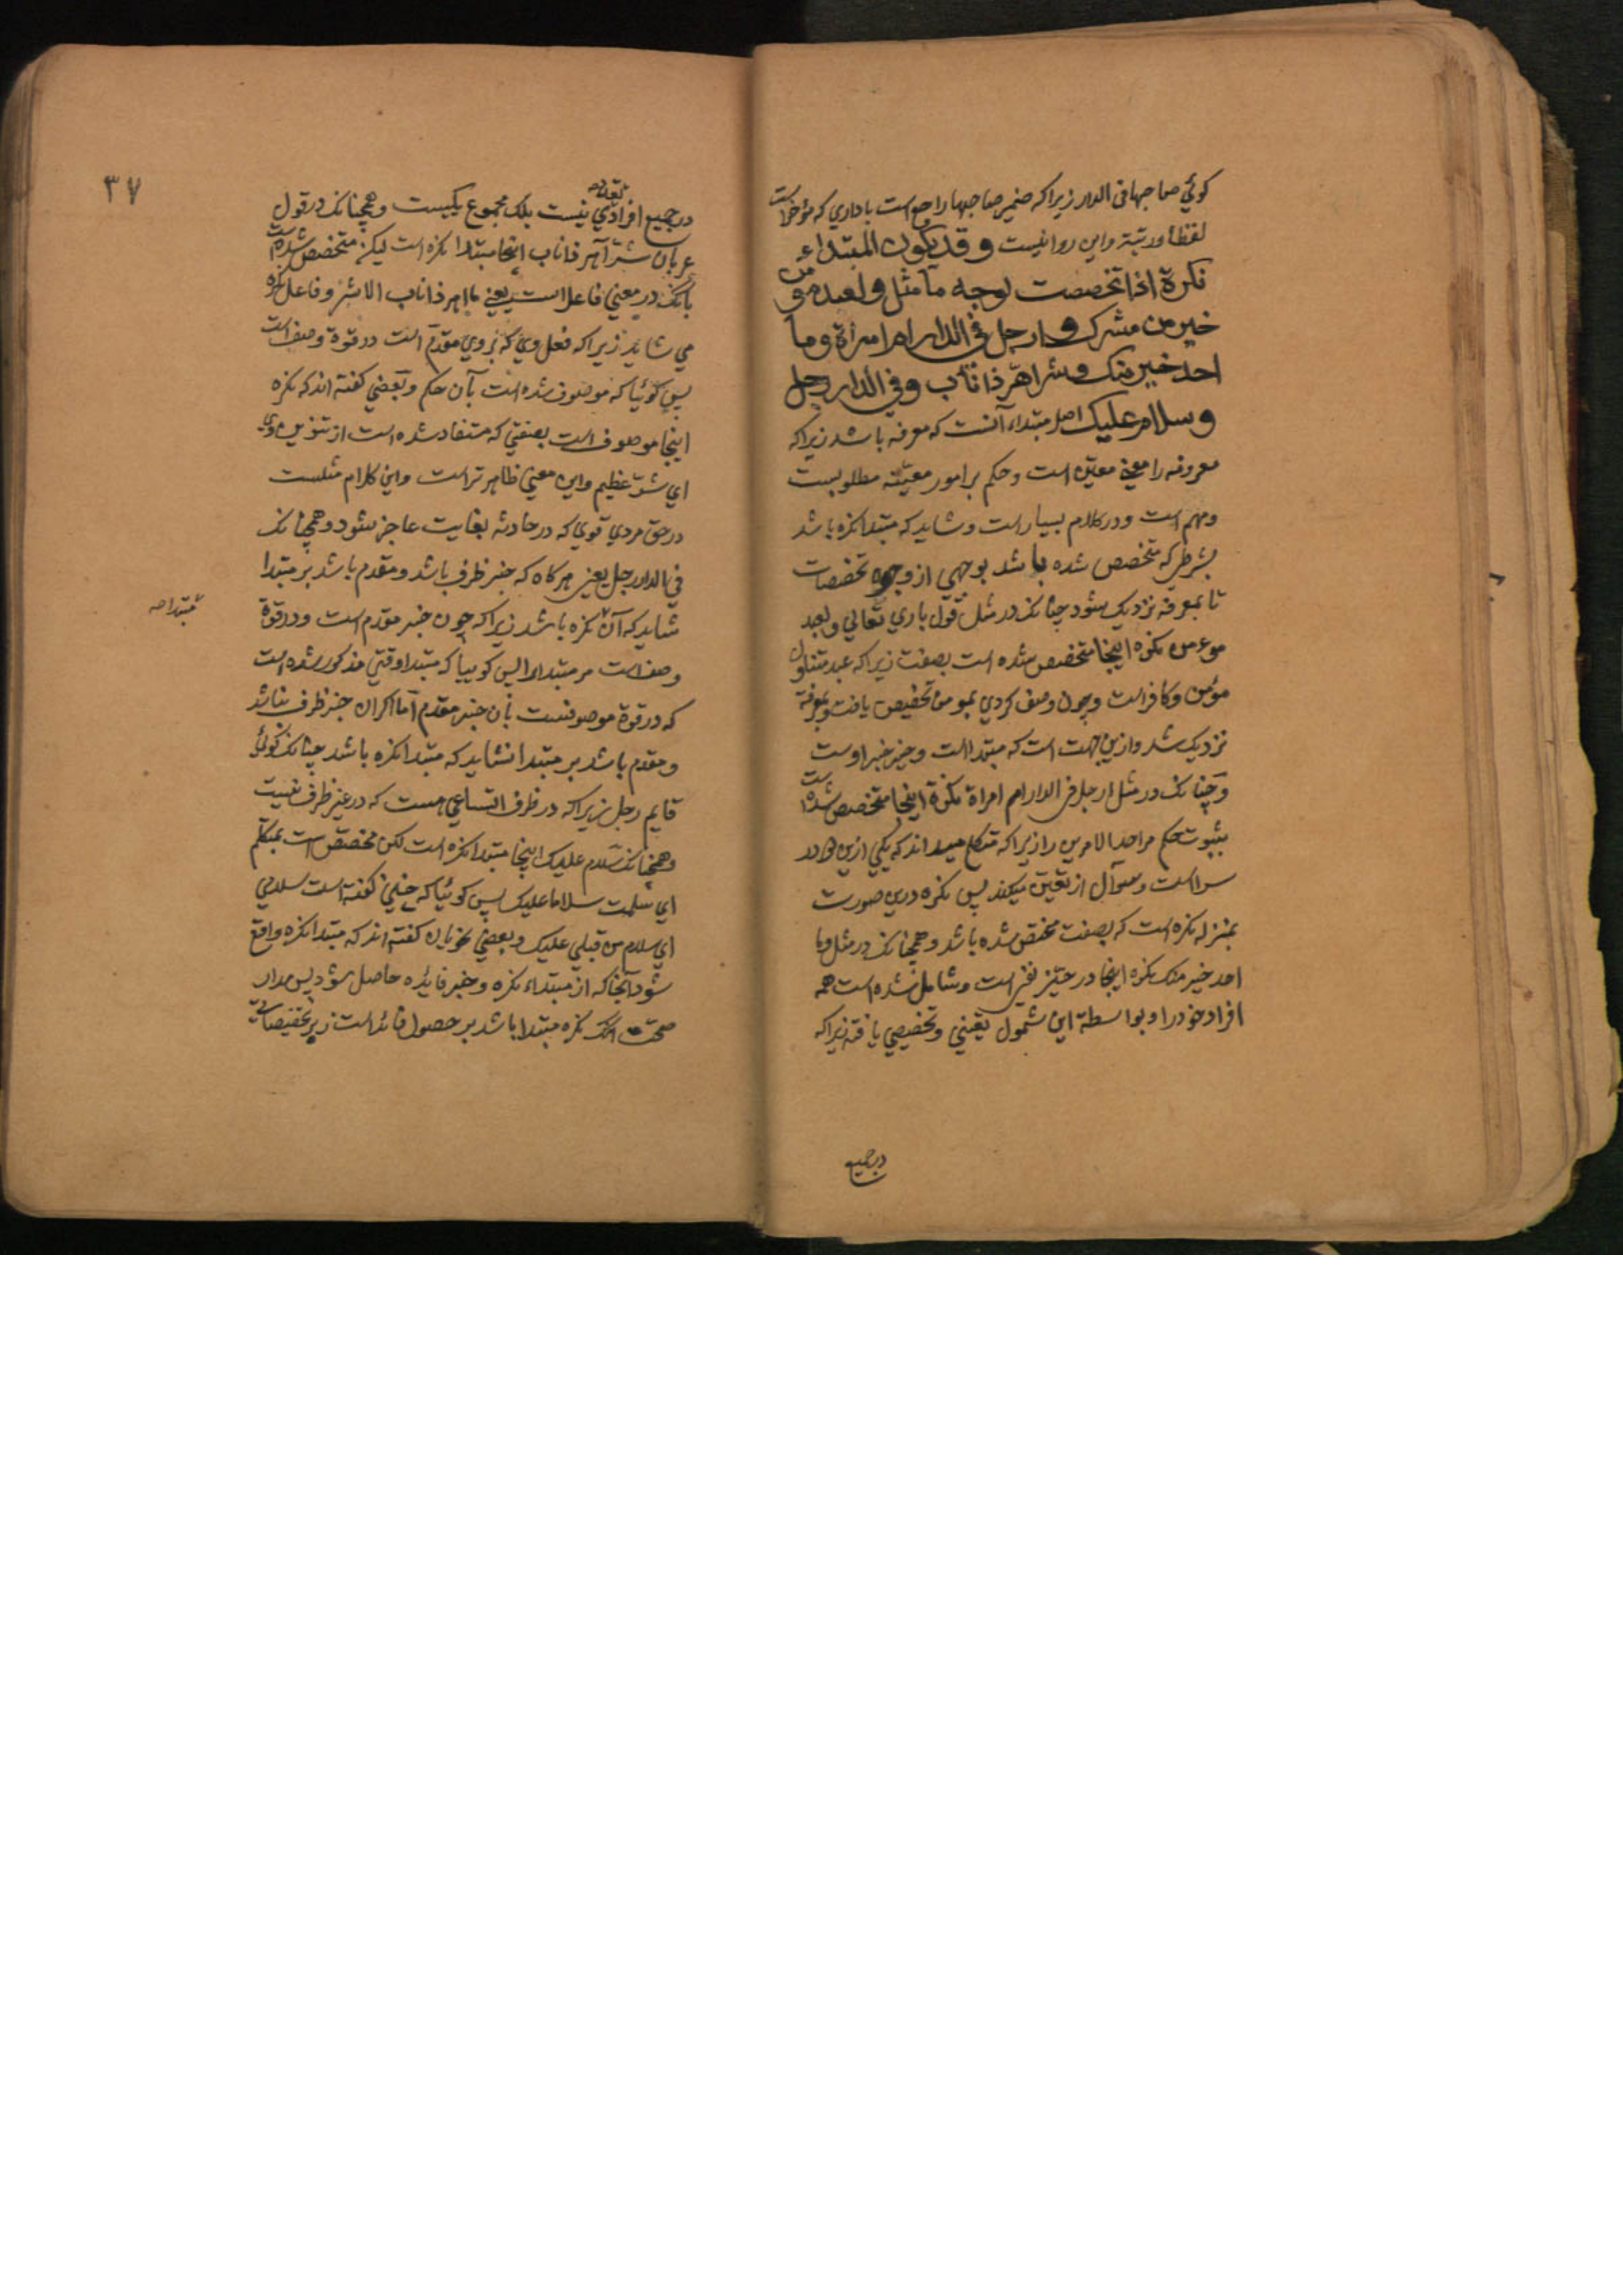 کوئي صاحبها في الدار زیراکه ضمیر صاحبها راجع است با داري که مؤخراست
لفظا ورتبة واین روانیست وقد یکون المبتداء
نکرة اذا تخصصت بوجه ما مثل ولعبد مؤمن
خیر من مشرک و ارجل في الدار ام امراة وما
احد خیر منک وشر اهر ذا ناب وفي الدار رجل
وسلام علیک اصل مبتداء آنست که معرفه باشد زیراکه
معرفه را معني معین است وحکم بر امور معینه مطلوبست
ومهم است ودرکلام بسیار است وشاید که مبتدا نکره باشد
بشرطي که متخصص شده باشد بوجهي از وجوه تخصصات
تا بمعرفه نزدیک شود چنانک در مثل قول باري تعالی ولعبد
موءمن نکره اینجا متخصص شده است بصفت زیراکه عبد متناول
مؤمن وکافر است وچون وصف کردي بمومن تخصیص یافت وبمعرفة
نزدیک شد وازین جهت است که مبتدا است وخیر خبر اوست
وچنانک در مثل ارجل في الدار ام امراة نکرة اینجا متخصص شده است
بثبوت حکم مر احد الامرین را زیراکه متکلم میداند که یکي ازین هر دو در
سراست وسوآل از تعین میکند پس نکره درین صورت
بمنزله نکره است که بصفت مختص شده باشد وهمچنانک در مثل وما
احد خیر منک نکره اینجا در حیز نفي است وشامل شده است همه
افراد خود را وبواسطة این شمول تعیني وتخصیصي یافته زیراکه
درجمیع
۳۷
درجمیع افراد تعددي نیست بلک مجموع یکیست وهمچنانک در قول
عربان شر اهر ذا ناب اینجا مبتدا نکره است لیکن متخصص شده است
بانک در معني فاعل است یعني ما اهر ذا ناب الا شر وفاعل نکره
مي شاید زیراکه فعل وي که بروي مقدم است در قوة وصف است
پس گوئیا که موصوف شده است بآن حکم وبعضي گفته اند که نکره
اینجا موصوف است بصفتي که مستفاد شده است از تنوین وي
اي شر عظیم واین معني ظاهر تر است واین کلام مثلست
در حق مردي قوي که در حادثه بغایت عاجز شود وهمچنانک
في الدار رجل یعني هرگاه که خبر ظرف باشد ومقدم باشد بر مبتدا
شاید که آن نکره باشد زیراکه چون خبر مقدم است ودر قوة
مبتدا صح
وصف است مر مبتدا را پس گوییا که مبتدا وقتي مذکور شده است
که در قوة موصوفست بآن خبر مقدم اما اگر آن خبر ظرف نباشد
ومقدم باشد بر مبتدا نشاید که مبتدا نکره باشد چنانک گوئي
قایم رجل زیراکه در ظرف اتساعي هست که در غیر ظرف نیست
وهمچنانک سلام علیک اینجا مبتدا نکره است لکن مخصص است بمتکلم
اي سلمت سلاما علیک پس گوئیا که چنین گفته است سلامي
اي سلام من قبلي علیک وبعضي نحویان گفته اند که مبتدا نکره واقع
شود آنجا که از مبتداء نکره وخبر فایده حاصل شود پس مدار
صحت انک نکره مبتدا باشد بر حصول فائده است نه بر تخصیصاتي